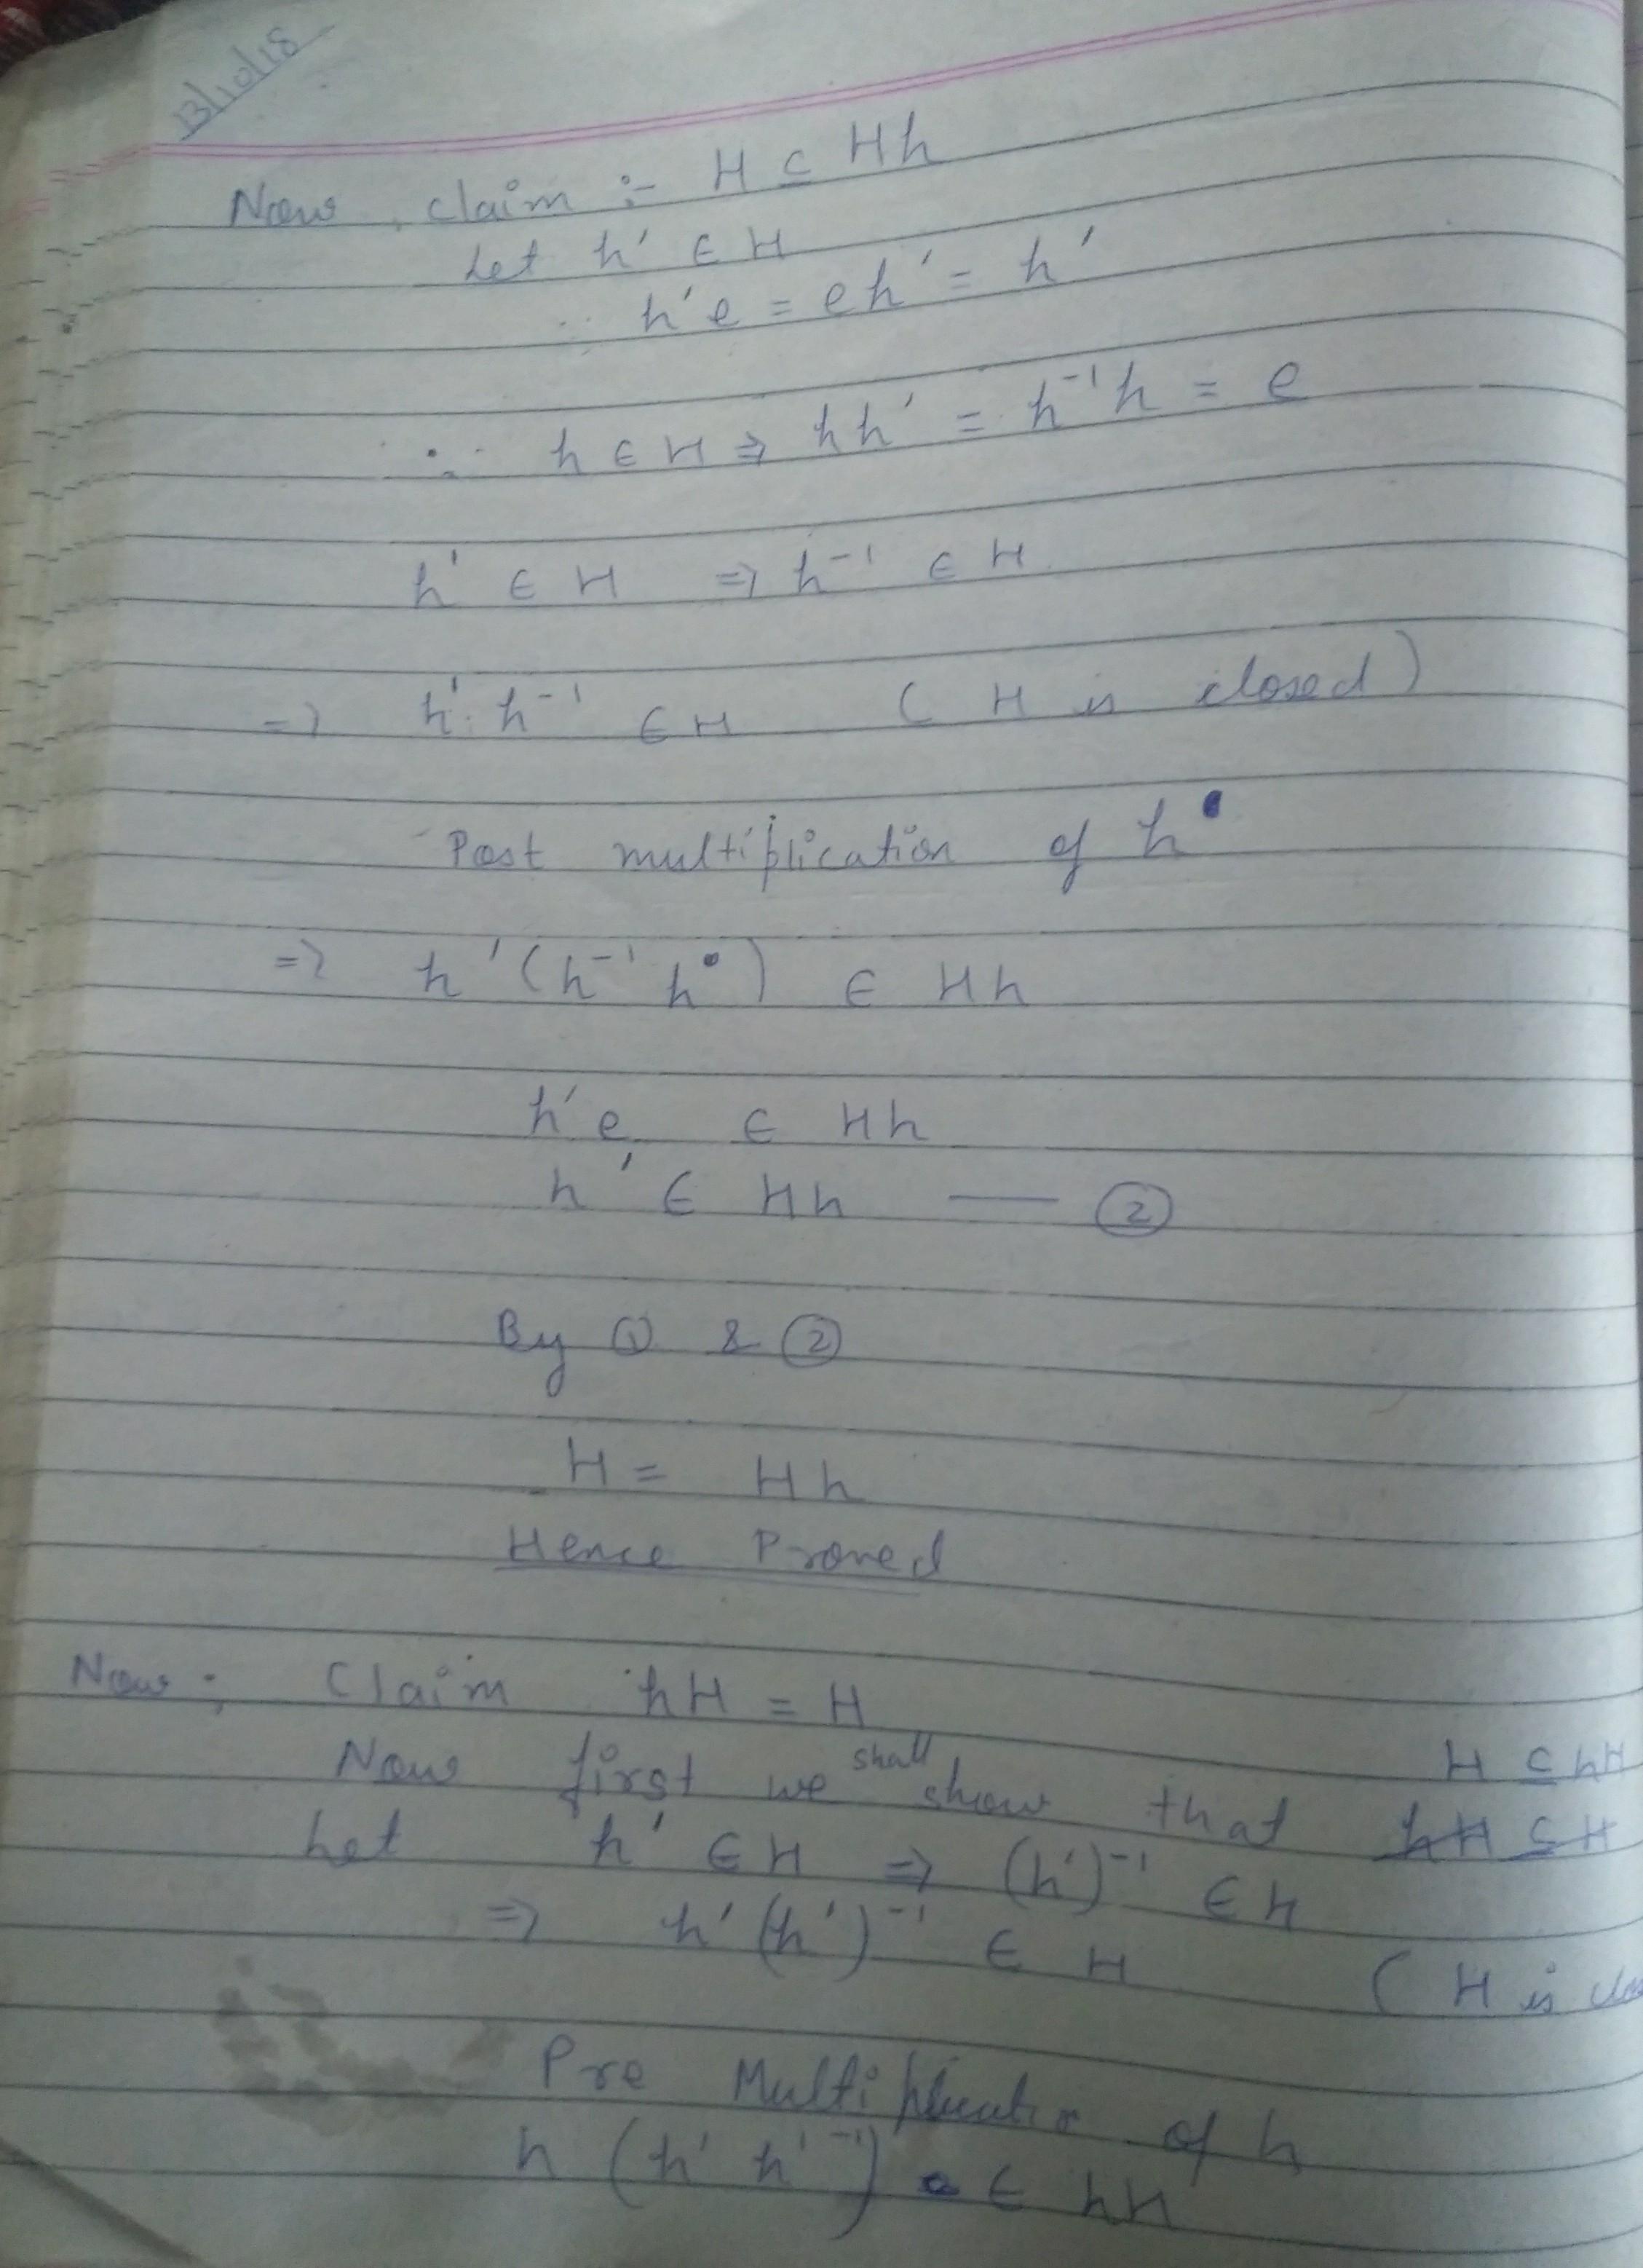 13/10/18
Now, claim :- H ⊆ Hh
Let h' ∈ H
h'e = eh' = h'
∴ h ∈ H ⇒ hh' = h⁻¹h = e
h' ∈ H ⇒ h⁻¹ ∈ H
⇒ h'. h⁻¹ ∈ H ( H is closed )
Post multiplication of h
⇒ h'(h⁻¹ h) ∈ Hh
h'e ∈ Hh
h' ∈ Hh — ②
By ① & ②
H = Hh
Hence Proved
Now; Claim hH = H
Now first we shall show that hH ⊆ H H ⊆ hH
Let h' ∈ H ⇒ (h')⁻¹ ∈ H
⇒ h'(h')⁻¹ ∈ H ( H is clo
Pre Multiplication of h
h (h' h'⁻¹) ∈ hH